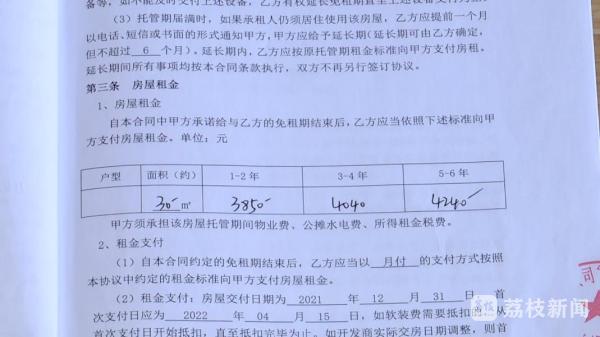 备等，如不能及时交付上述设备，乙方有权延长免租期直至上述设备交付为
（3）托管期届满时，如果承租人仍须居住使用该房屋，乙方应提前一个月
以电话、短信或书面的形式通知甲方，甲方应给予延长期（延长期可由乙方确定，
但不超过 6 个月）。延长期内，乙方应按原托管期租金标准向甲方支付房租。
延长期间所有事项均按本合同条款执行，双方不再另行签订协议。
第三条 房屋租金
1、房屋租金
自本合同中甲方承诺给与乙方的免租期结束后，乙方应当依照下述标准向甲
方支付房屋租金。单位：元
户型 面积（约） 1-2 年 3-4 年 5-6 年
30 ㎡ 3850 4040 4240
甲方须承担该房屋托管期间物业费、公摊水电费、所得租金税费。
2、租金支付
（1）自本合同约定的免租期结束后，乙方应当以 月付 的支付方式按照
本协议中约定的租金标准向甲方支付房屋租金。
（2）租金支付：房屋交付日期为 2021 年 12 月 31 日，首
次支付日应为 2022 年 04 月 15 日，如软装费需要抵扣
首次支付日开始抵扣，直至抵扣完毕为止。如开发商实际交房日期调整，则首
荔枝新闻